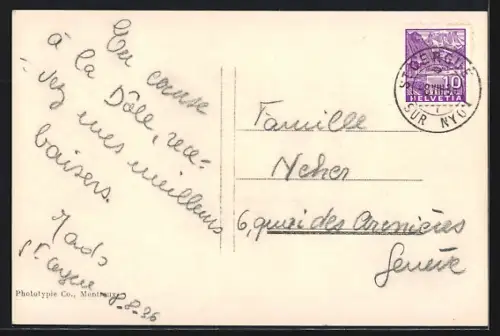 En course
à la Dôle, rece-
vez mes meilleurs
baisers.
Mado
St. Cergue 8-8-36
Phototypie Co., Montreux
10
HELVETIA
ST CERGUE
SUR NYON
Famille
Neher
6, quai des Arénières
Genève